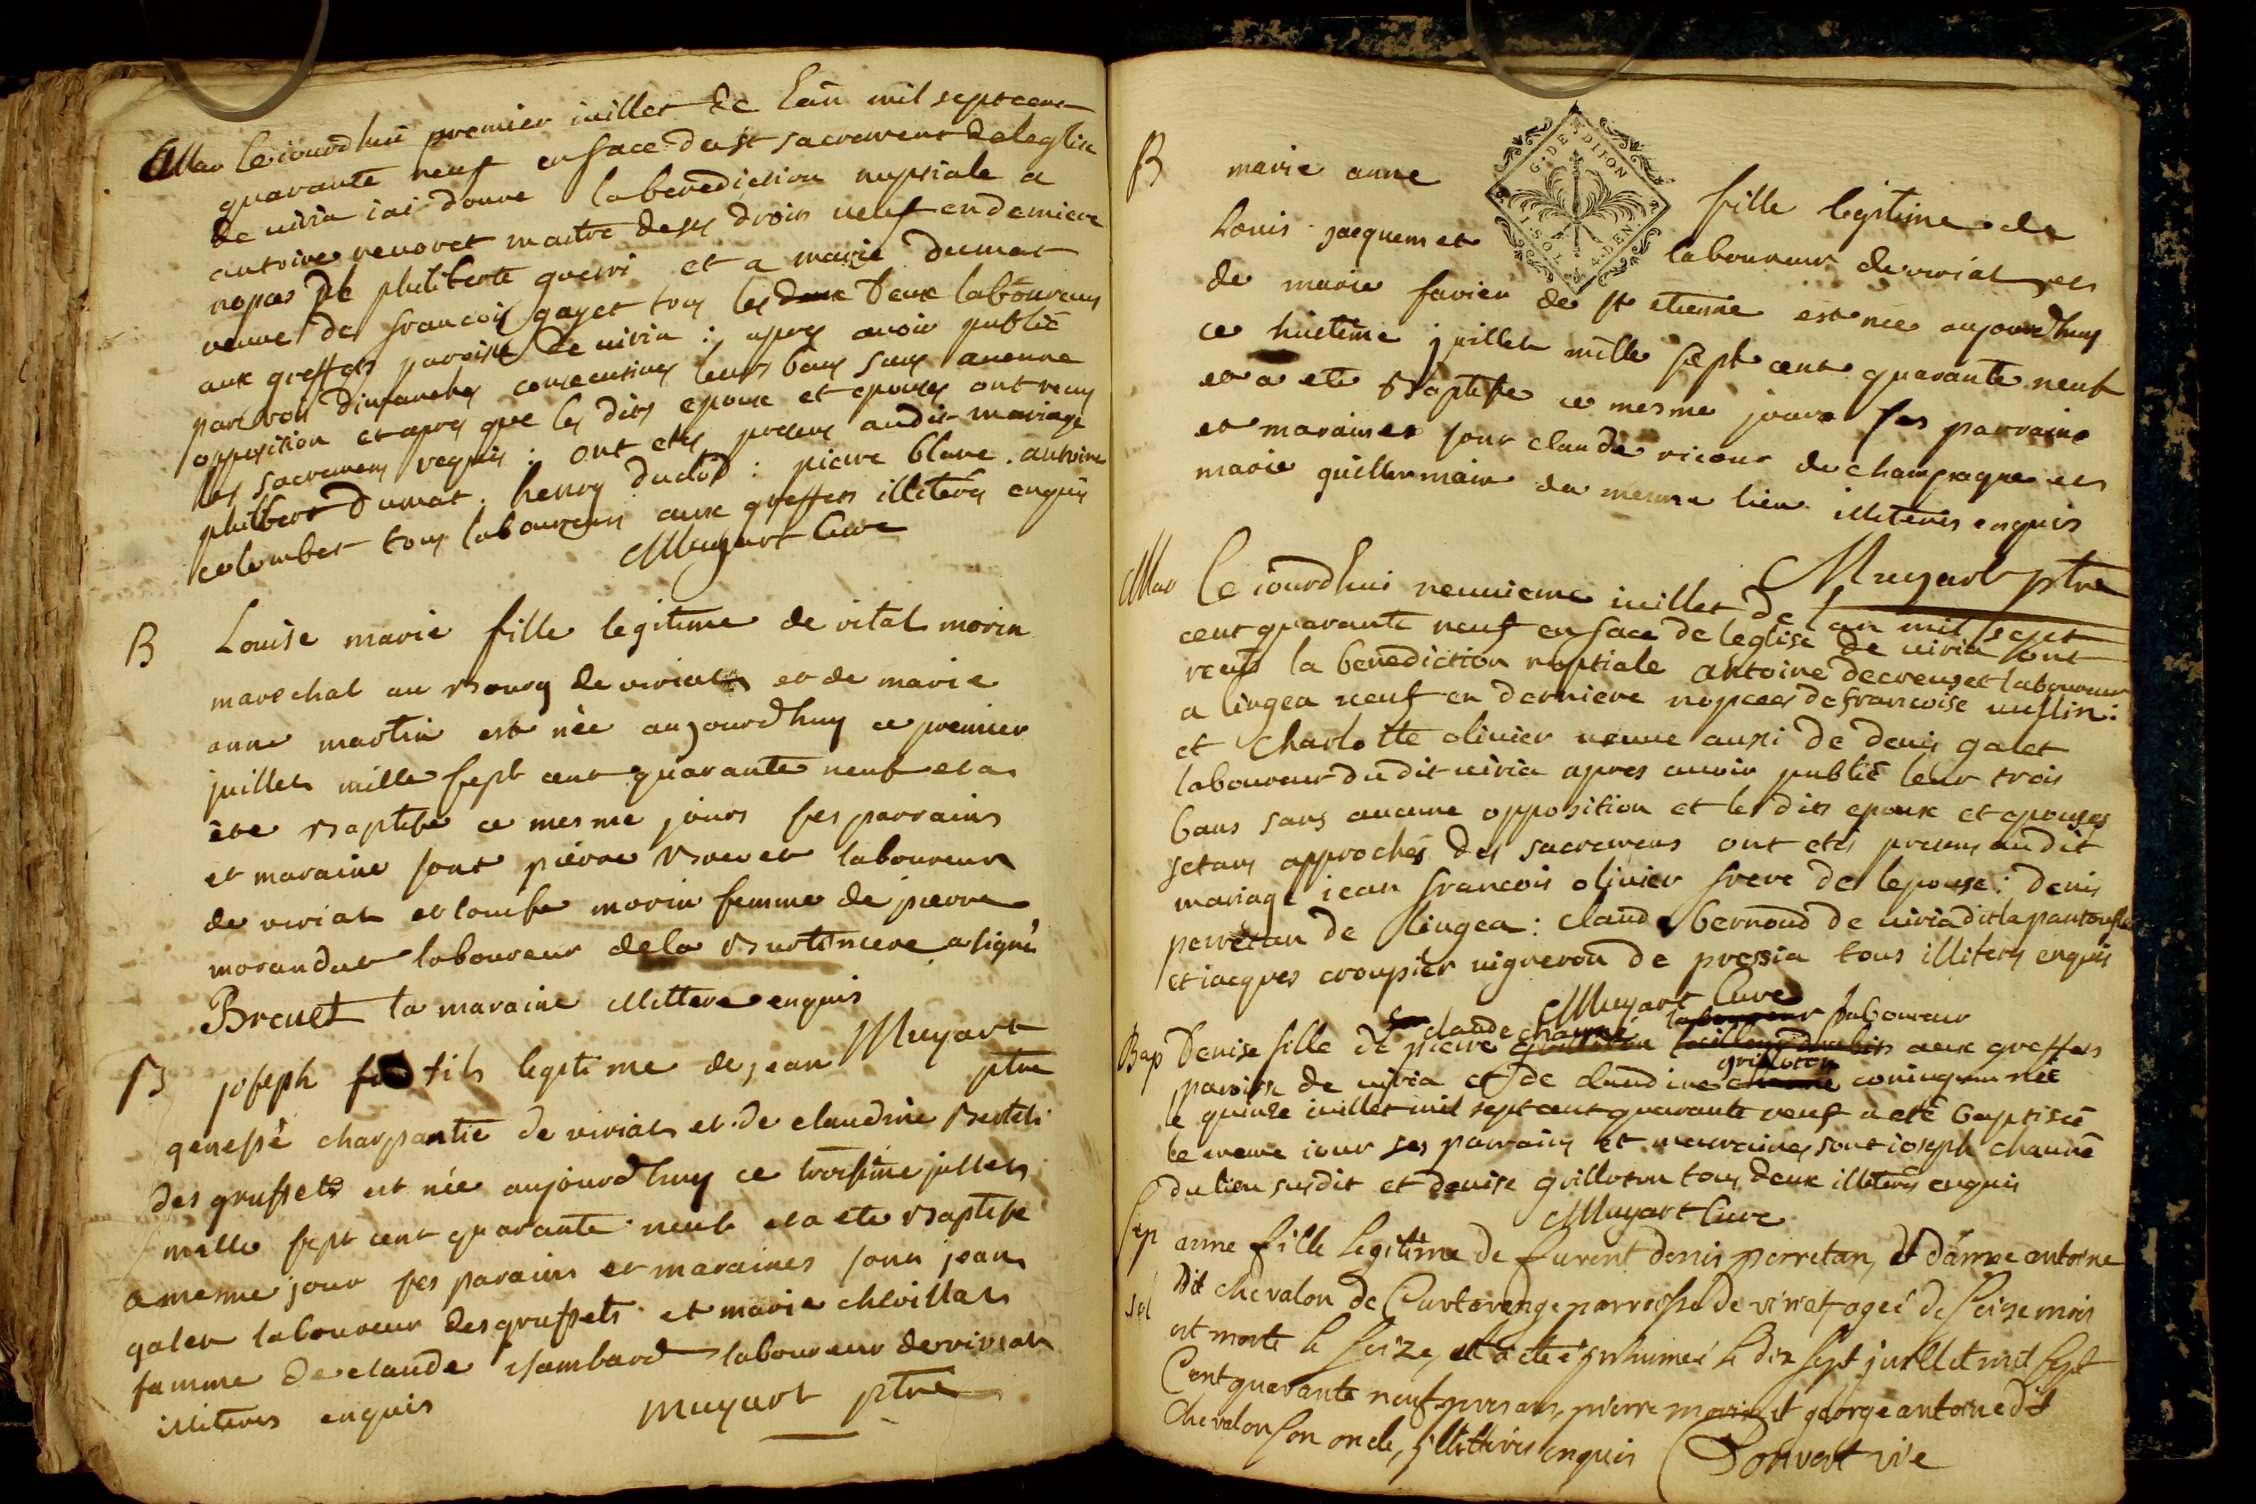 Mar Ce iourdhui premier iuillet de l'an mil sept cent
quarante neuf en face du st sacrement de leglise
de uiria iai donne la benediction nuptiale a
antoine renoret maitre de ses droits ueuf en derniere
nopces de philiberte guerri et a marie dumat
veuve de francois gayet tous les deux laboureurs
aux greffets paroisse de uiria : apres avoir publié
par trois dimanches consecutives leurs bans sans aucune
opposition et apres que les dits epoux et epouses ont reçus
les sacremens requis : ont etes presens audit mariage
philibert dumat . henry duclos : pierre blanc . antoine
colombet tous laboureurs aux greffets illiterés enquis
Muyart Cure
B Louise marie fille legitime de vital morin
marechal au Bourg de viriat et de marie
anne martin est née aujourdhuy ce premier
juillet mille sept cent quarante neuf et a
ete Baptise ce mesme jours ses parrains
et maraine sont pierre Brevet laboureur
de viriat et louise morin femme de pierre
morandat laboureur de la Burtiniere a signé
Brevet la maraine illittere enquis
Muyart
ptre
B joseph fils legitime de jean
genessé charpantié de viriat et de claudine
des grussets est née aujourdhuy ce troisiême jillet
mille sept cent quarante neuf et a ete Baptise
a mesme jour ses parains et maraines sont jean
galet laboureur des grussets et marie chevillat
famme de claude isambard laboureur de viriat
illiteres enquis muyart ptre
G. DE DIJON
I. SOL 4. DEN.
B marie anne fille legitime de
Louis jacquemet laboureur de viriat et
de marie favier de st etienne est née aujourdhuy
ce huitiême juillet mille sept cent quarante neuf
et a ete Baptise ce mesme jours ses parrains
et maraines sont claude vicour de champagne et
marie guillermain du mesme lieu illiteres enquis
Muyart ptre
Mar Ce iourdhui neuuieme iuillet de l'an mil sept
cent quarante neuf en face de leglise de uiria ont
reçus la benediction nuptiale antoine decreuset laboureur
a lingea ueuf en derniere nopces de francoise :
et Charlotte olivier ueuue aussi de denis galet
laboureur dudit uiria apres auoir publié leur trois
bans sans aucune opposition et les dits epoux et epouses
setans approchés des sacremens ont etés presens audit
mariage iean francois olivier frere de lepouse : denis
perretan de lingea : claude bernoud de uiria dit la pantoufle
et iacques croupier uigneron de pressia tous illiterés enquis
Muyart Cure
claude chauné laboureur
Bap Denise fille de pierre aux greffets
grilloton
paroisse de uiria et de claudine coniugum née
le quinze iuillet mil sept cent quarante neuf a eté baptiseé
le meme iour ses parrains et marraines sont ioseph chauné
du lieu susdit et denise grilloton tous deux illiterés enquis
Muyart Cure
Sep anne fille legitime de furent denis perretan, et danne antoine
dit chevalon de Curtarenge parroisse de viriat ageé de seize mois
sol est morte le seize, et a eté inhumeé le dix sept juillet mil sept
Cent quarante neuf presens, pierre morin et george antoine dit
Chevalon son oncle, illitterés enquis Convert vic